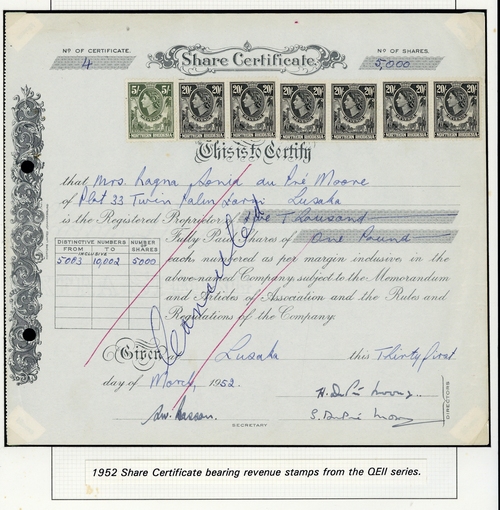 Nº OF CERTIFICATE.
4
Share Certificate.
Nº OF SHARES.
5,000
5/- 5/- NORTHERN RHODESIA
20/- 20/- NORTHERN RHODESIA
20/- 20/- NORTHERN RHODESIA
20/- 20/- NORTHERN RHODESIA
20/- 20/- NORTHERN RHODESIA
20/- 20/- NORTHERN RHODESIA
20/- 20/- NORTHERN RHODESIA
This is to Certify
that Mrs. Ragna Sonid du Pré Moore
of Plot 33 Twin Palm Lusaka
is the Registered Proprietor of Five Thousand
Fully Paid Shares of One Pound
DISTINCTIVE NUMBERS
NUMBER OF SHARES
FROM TO
INCLUSIVE
5003 10,002 5000
each numbered as per margin inclusive in the
above-named Company, subject to the Memorandum
and Articles of Association and the Rules and
Regulations of the Company.
Given
Lusaka this Thirty first
day of March, 1952.
DIRECTORS
SECRETARY
1952 Share Certificate bearing revenue stamps from the QEII series.